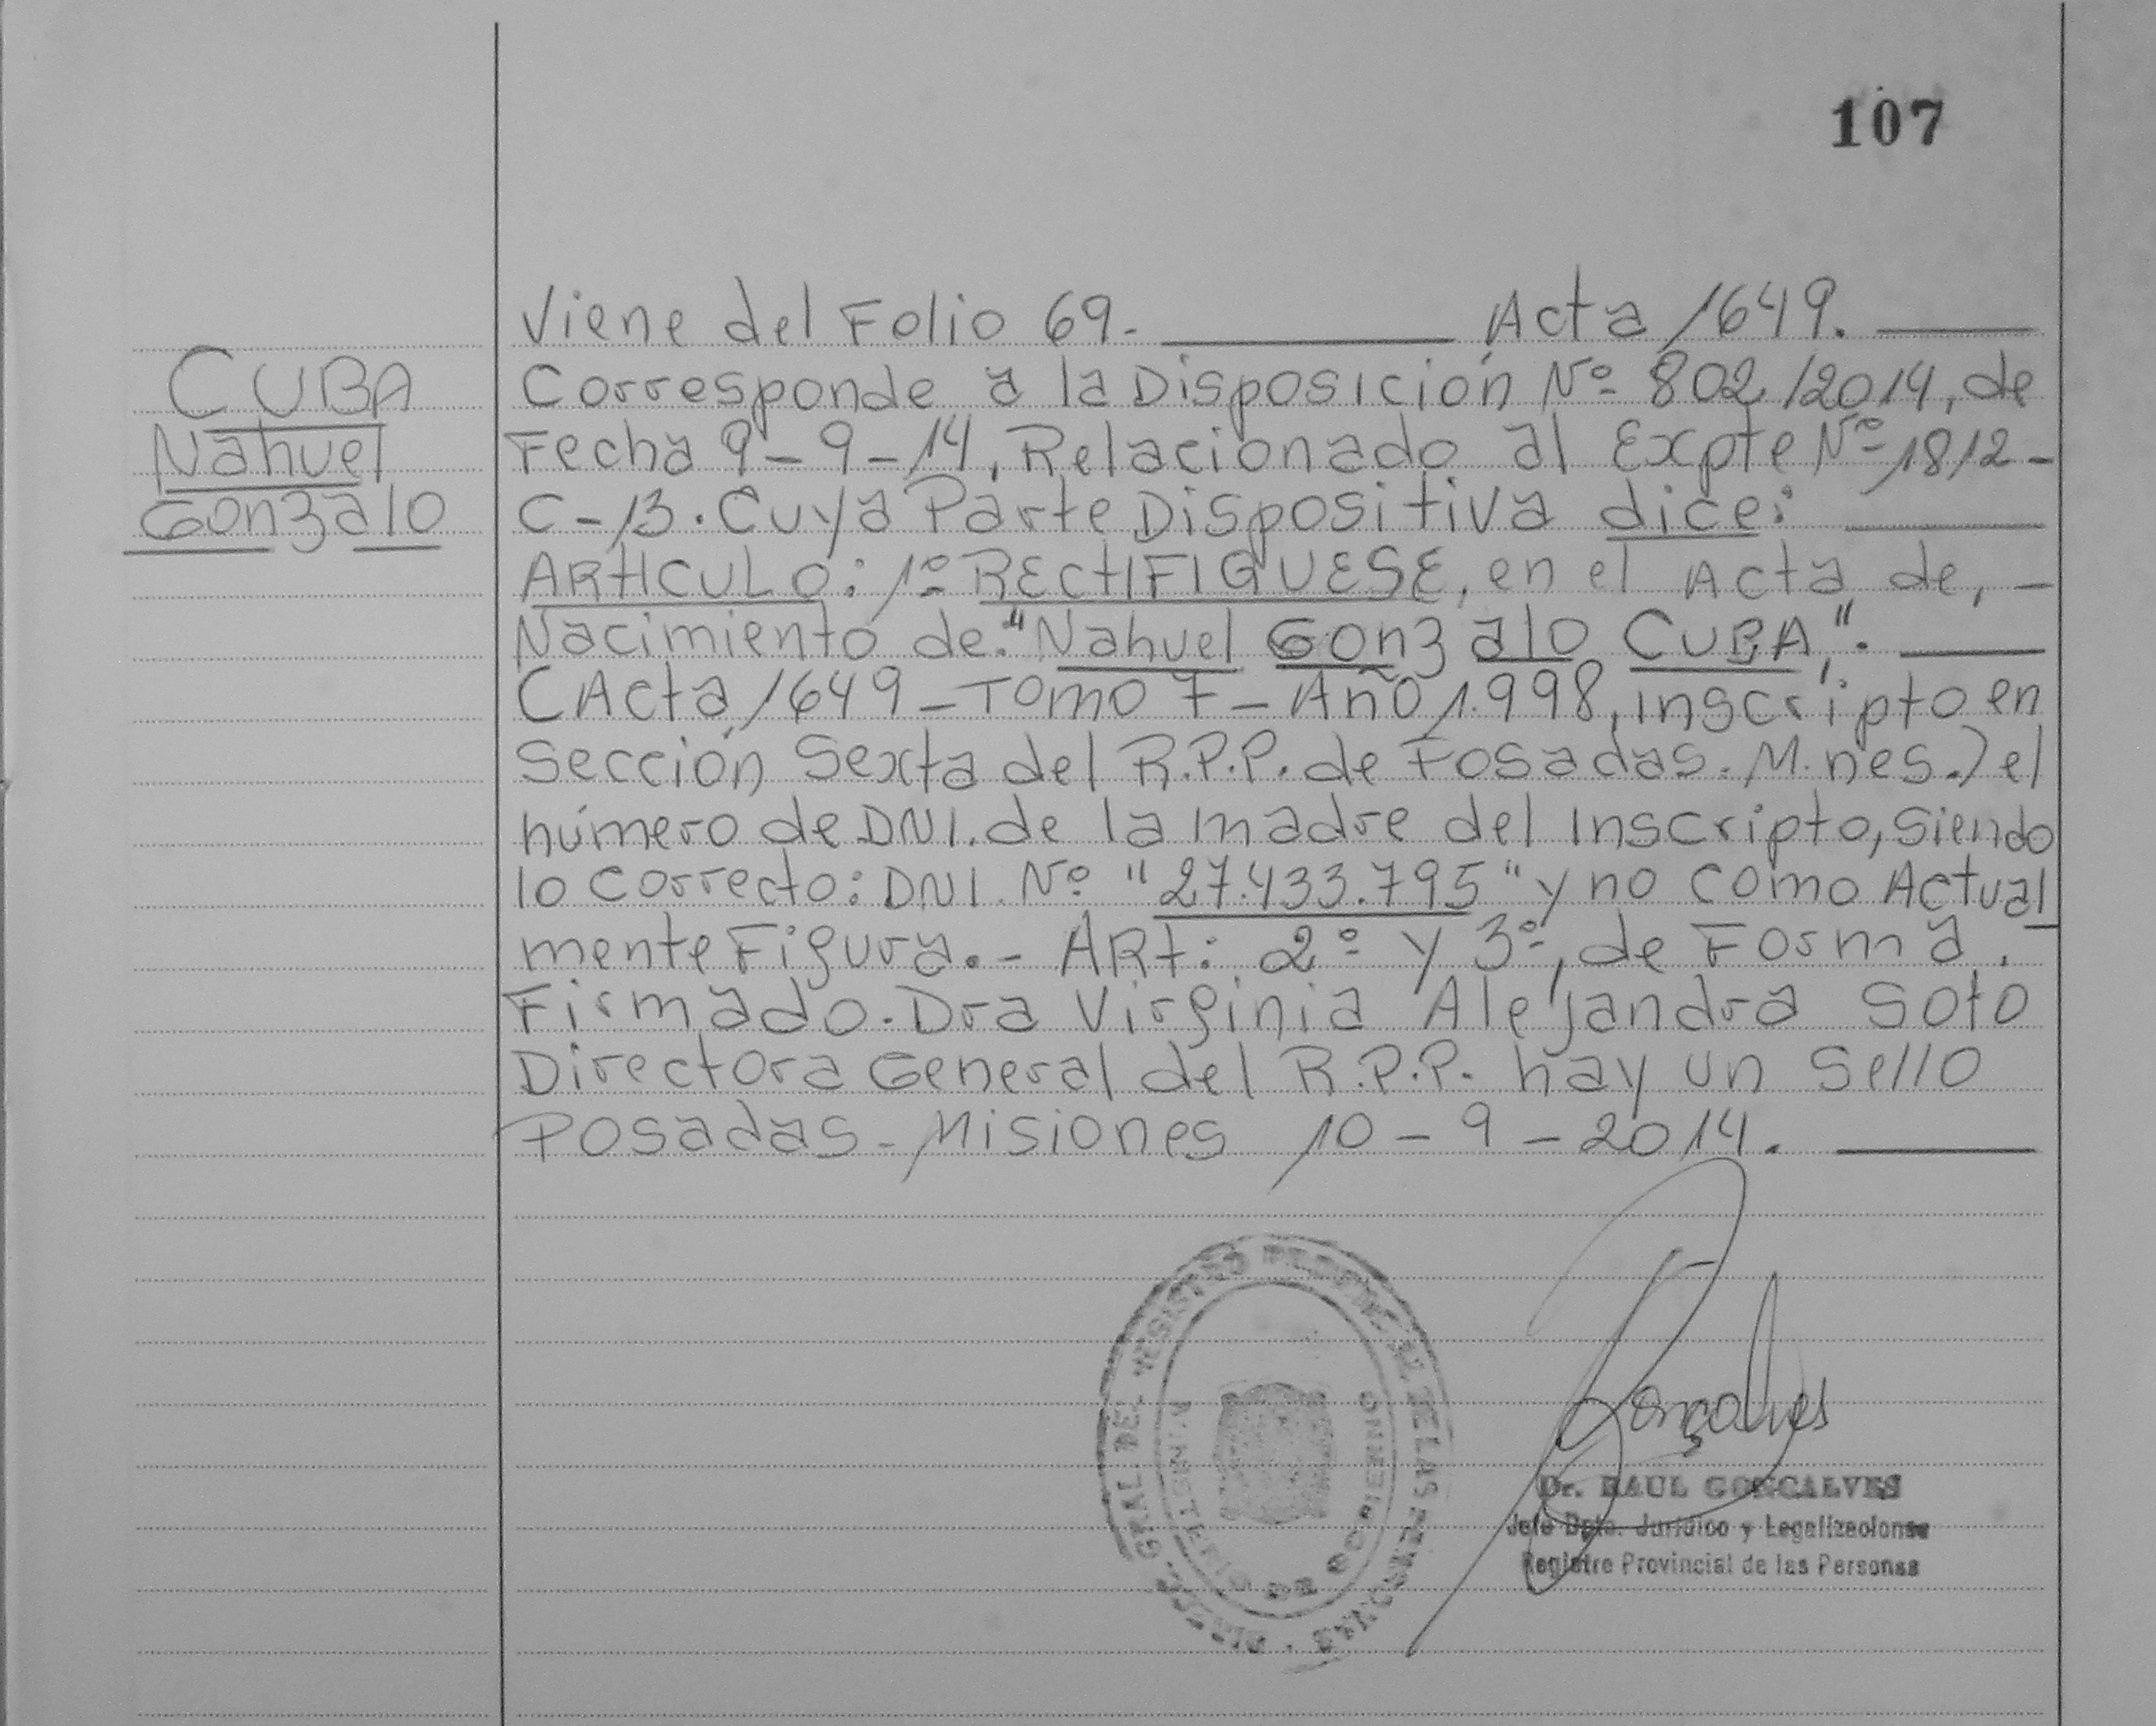 107
Viene del Folio 69.- Acta 1649.
CUBA
Nahuel
Gonzalo
Corresponde a la Disposición Nº 802/2014, de
Fecha 9-9-14, Relacionado al Expte Nº 1812-
C-13. Cuya Parte Dispositiva dice:
ARtICULO: 1º RECtIFIQUESE, en el Acta de, -
Nacimiento de. "Nahuel Gonzalo CUBA,".
(Acta 1649 - Tomo 7 - Año 1.998, inscripto en
Sección Sexta del R.P.P. de Posadas. M.nes.) el
número de DNI. de la madre del Inscripto, siendo
lo correcto: DNI. Nº "27.433.795" y no como Actual
mente Figura.- ARt: 2º y 3º, de Forma.
Firmado. Dra Virginia Alejandra Soto
Directora General del R.P.P. hay un Sello
Posadas - Misiones 10-9-2014.
GRAL. DEL REGISTRO PROVINCIAL DE LAS PERSONAS
MINISTERIO DE GOBIERNO
Gonçalves
Dr. RAUL GONCALVES
Jefe Dpto. Jurídico y Legalizaciones
Registro Provincial de las Personas